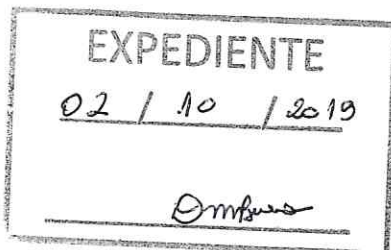 EXPEDIENTE
02 / 10 / 2019